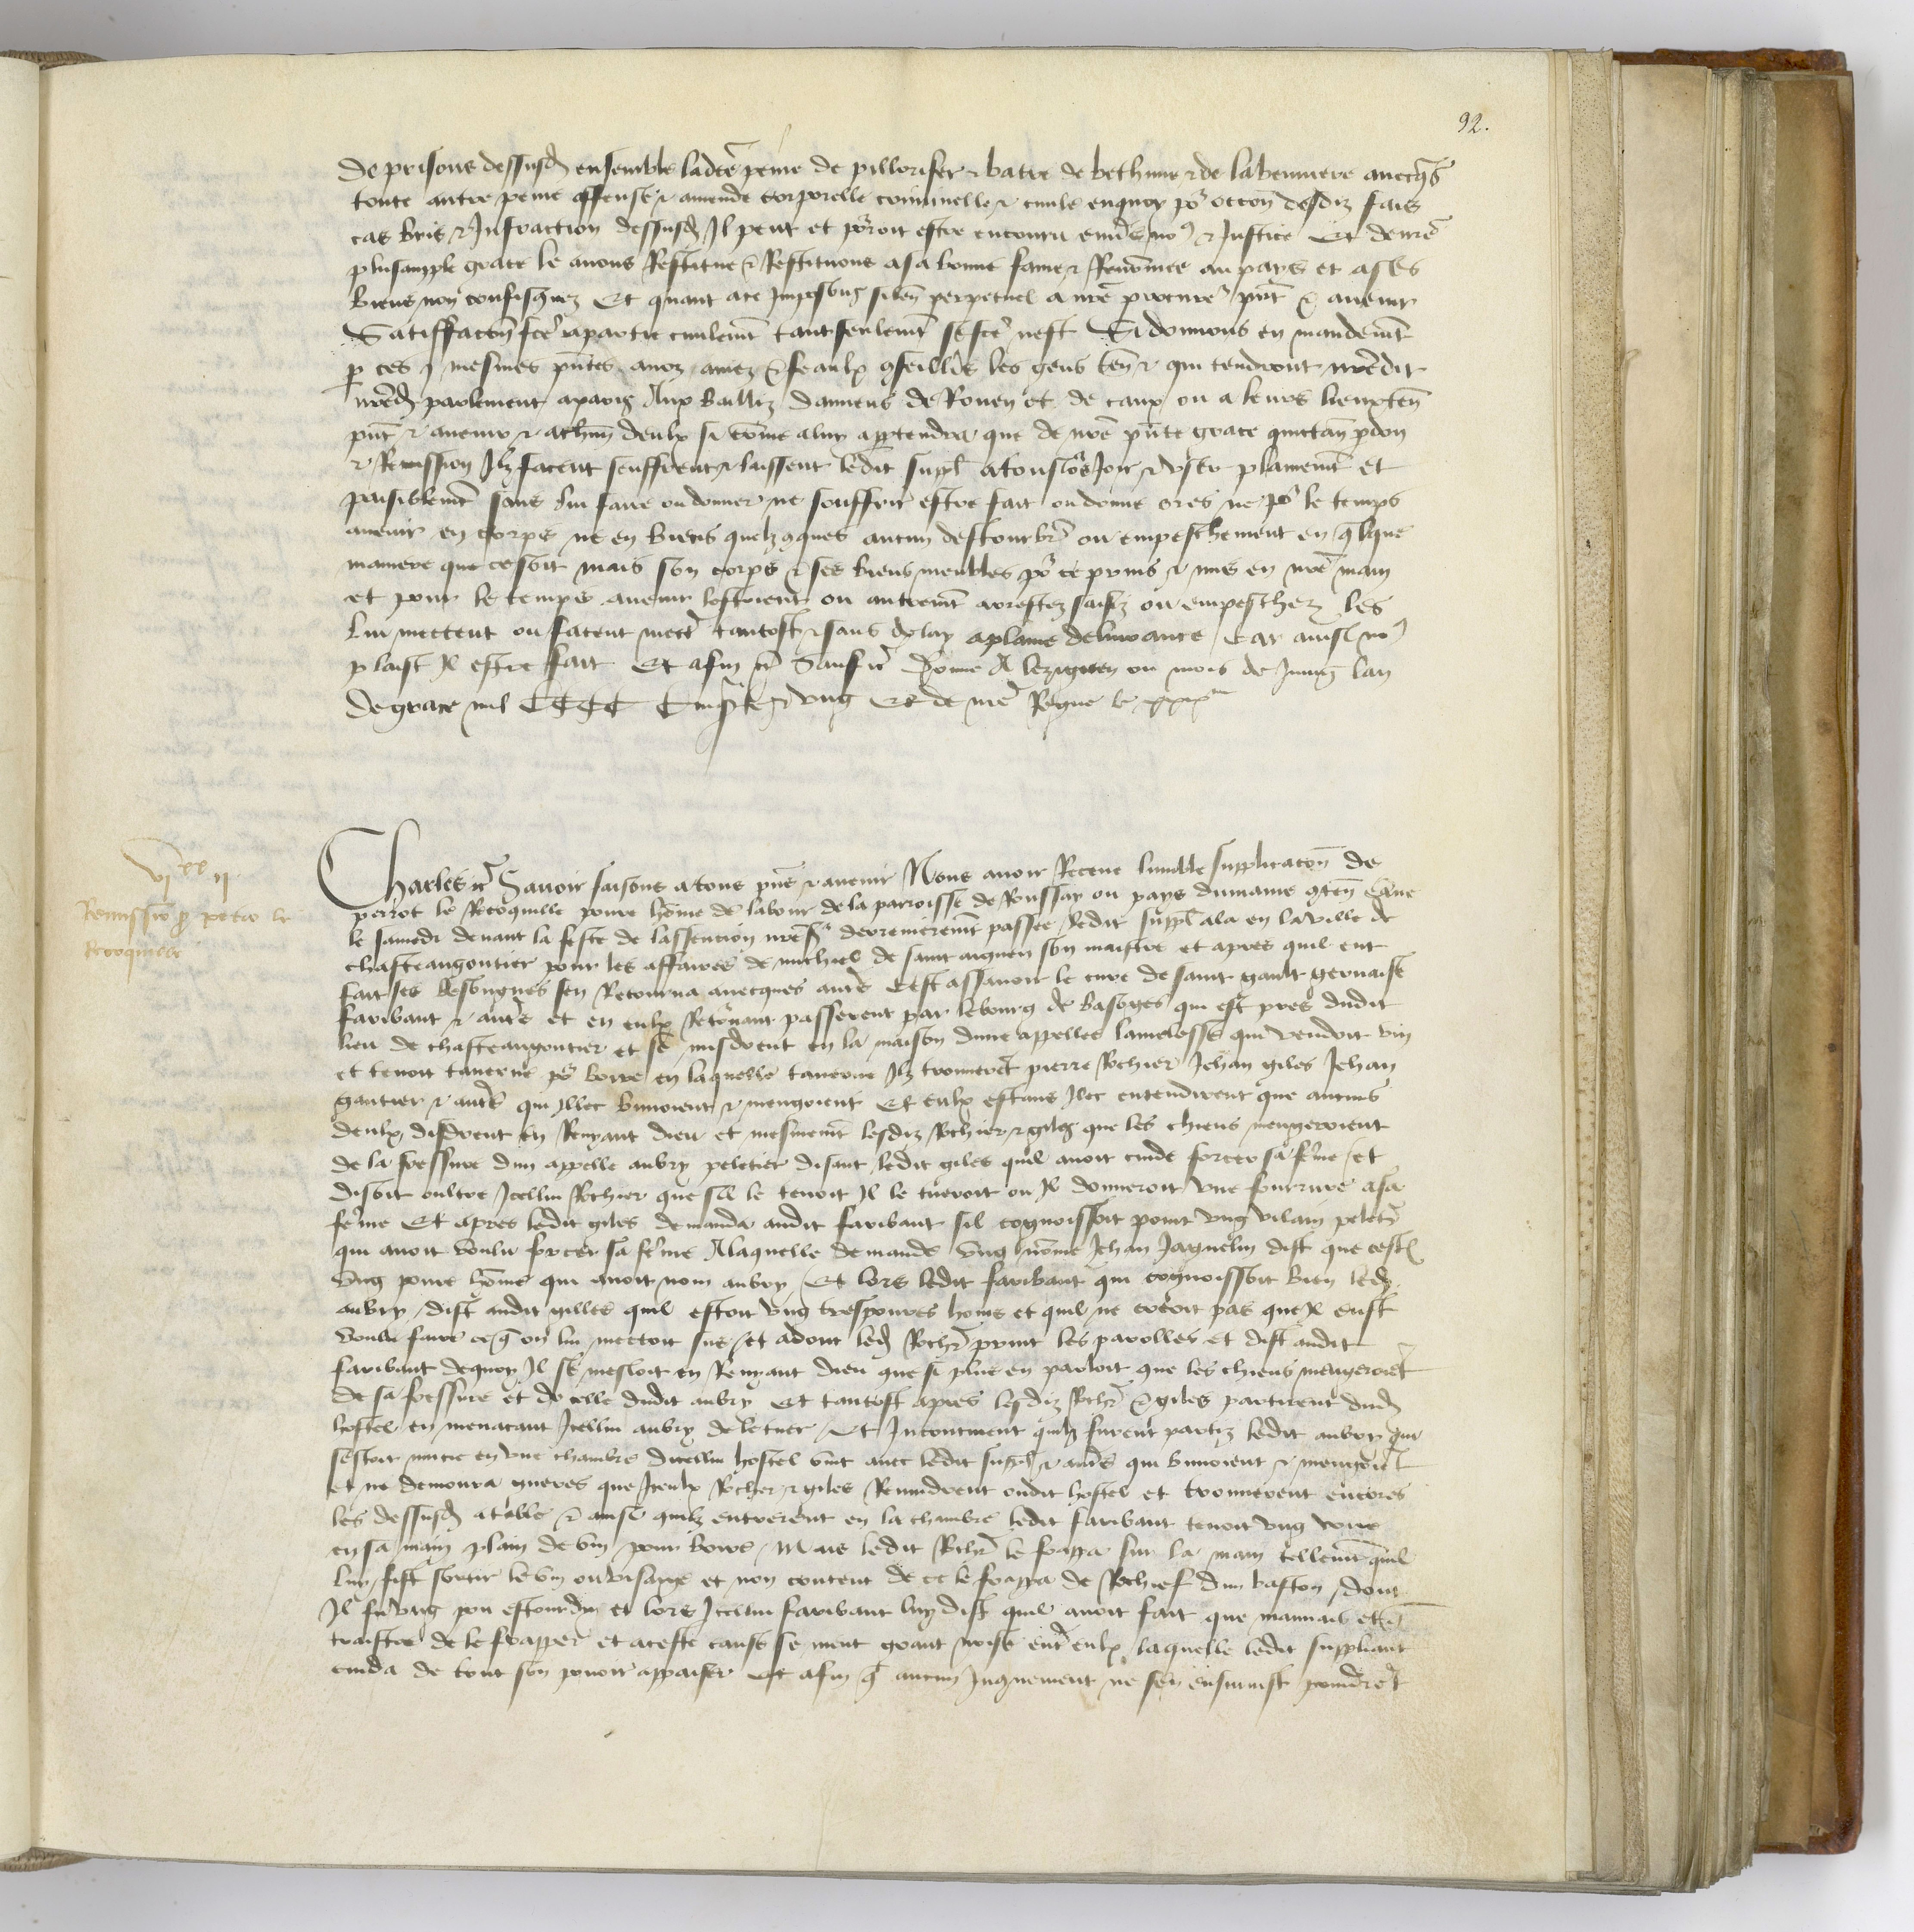 92.
de prisons dessusd ensemble ladce peine de pilloriser & batre de bethune & de la benniere avecqs
toute autre peine offense & amende corporelle criminelle & civile enquoy po occon desdiz fais
cas bris & Infraction dessusd Il peut et porroit estre encouru envs no & Justice Et de nre
plusample grace le avons Restitue & Restituons a sa bonne fame & Renommee au pays et a ses
biens non confisquez Et quant a ce Imposons silen perpetuel a nre procureur pnt & avenir
Satisfaccon fce a partie civilement tantseulemt se fce nest Si donnons en mandemt
p ces mesmes pntes a noz amez & feaulx conseillers les gens ten & qui tendront nredit
nred parlement a paris Aux Bailliz damiens de Rouen et de caux ou a leurs lieuxten
pnt & avenir & a chun deulx si comme a luy appartendra que de nre pnte grace quictan pdon
& Remission Ilz facent seuffrent & laissent ledit suppl a tousjors Joir & user plainemt et
paisiblemt sans lui faire ou donner ne souffrir estre fait ou donne ores ne po le temps
avenir en corps ne en biens quelzconques aucun destourbr ou empeschement en qlque
maniere que ce soit mais son corps & ses biens meubles po ce prins & mis en nre main
et pour le temps avenir lestoient ou autremt arrestez saisiz ou empeschez les
lui mectent ou facent mectr tantost & sans delay a plaine delivrance Car ainsi no
plaist Il estre fait Et afin &c Sauf &c Donne A lezignen ou mois de Juing lan
de grace mil CCCC Cinqte & ung Et de nre Regne le xxixme
vixx ii
Remissio p petro le
Recoquille
Charles &c Savoir faisons a tous pns & avenir Nous avoir Receue lumble supplicacon de
perrot le Recoquille povre home de labour de la parroisse de Roussay ou pays du maine conten Que
le samedi devant la feste de lassencion nres derrenieremt passee ledit suppl ala en la ville de
chasteaugontier pour les affaires de michiel de saint aignen son maistre et apres quil eut
fait ses besongnes sen Retourna avecques autrs Cest assavoir le cure de saint gault gervaise
faribant & autrs et en eulx Retornant passerent par le bourg de basoges qui est pres dudit
lieu de chasteaugontier et se misdrent en la maison dune appellee lamelesse qui vendoit vin
et tenoit taverne po boire en laquelle taverne Ilz trouvert pierre Rohier Jehan giles Jehan
gautier & autrs qui Illec buvoient & mengoient Et eulx estans Ilec entendirent que aucuns
deulx disdrent en Renyant dieu et mesmemt lesdiz Rohier & giles que les chiens mengeroient
de la fressure dun appelle aubry peletier disant ledit giles quil avoit cuide forcer sa feme et
disoit oultre Icellui Rohier que sil le tenoit Il le tueroit ou Il donneroit une fourrure a sa
feme Et apres ledit giles demanda audit faribant sil cognoissoit point ung vilain peletr
qui avoit voulu forcer sa feme A laquelle demande ung nome Jehan Jaquelin dist que cest
ung povre home qui avoit nom aubry Et lors ledit faribant qui cognoissoit bien led
aubry dist audit gilles quil estoit ung trespovres homs et quil ne creoit pas que Il eust
voulu faire ce q on lui mectoit sus et adont led Rohr print les parolles et dist audit
faribant dequoy Il se mesloit en Renyant dieu que si plus en parloit que les chiens mengeroiet
de sa fressure et de celle dudit aubry Et tantost apres lesdiz Rohr & giles partirent dud
hostel en menacant Icellui aubry de le tuer Et Incontinent quilz furent partiz ledit aubry qui
sestoit mucie en une chambre dicellui hostel vint avec ledit suppl & autrs qui buvoient & mengoiet
et ne demoura gueres que Iceulx Rohier & giles Revindrent oudit hostel et trouverent encores
les dessusd a table & ainsi quilz entrerent en la chambre ledit faribant tenoit ung voire
en sa main plain de vin pour boire Mais ledit Rohr le frappa sur la main tellemt quil
luy fist sortir le vin ou visaige et non content de ce le frappa de Rechief dun baston dont
Il fu ung pou estourdy et lors Icellui faribant luy dist quil avoit fait que mauvais et
traistre de le frapper et a ceste cause se meut grant noise entr eulx laquelle ledit suppliant
cuida de tout son povoir appaiser Et afin q aucun Inconvenient ne sen ensuivist